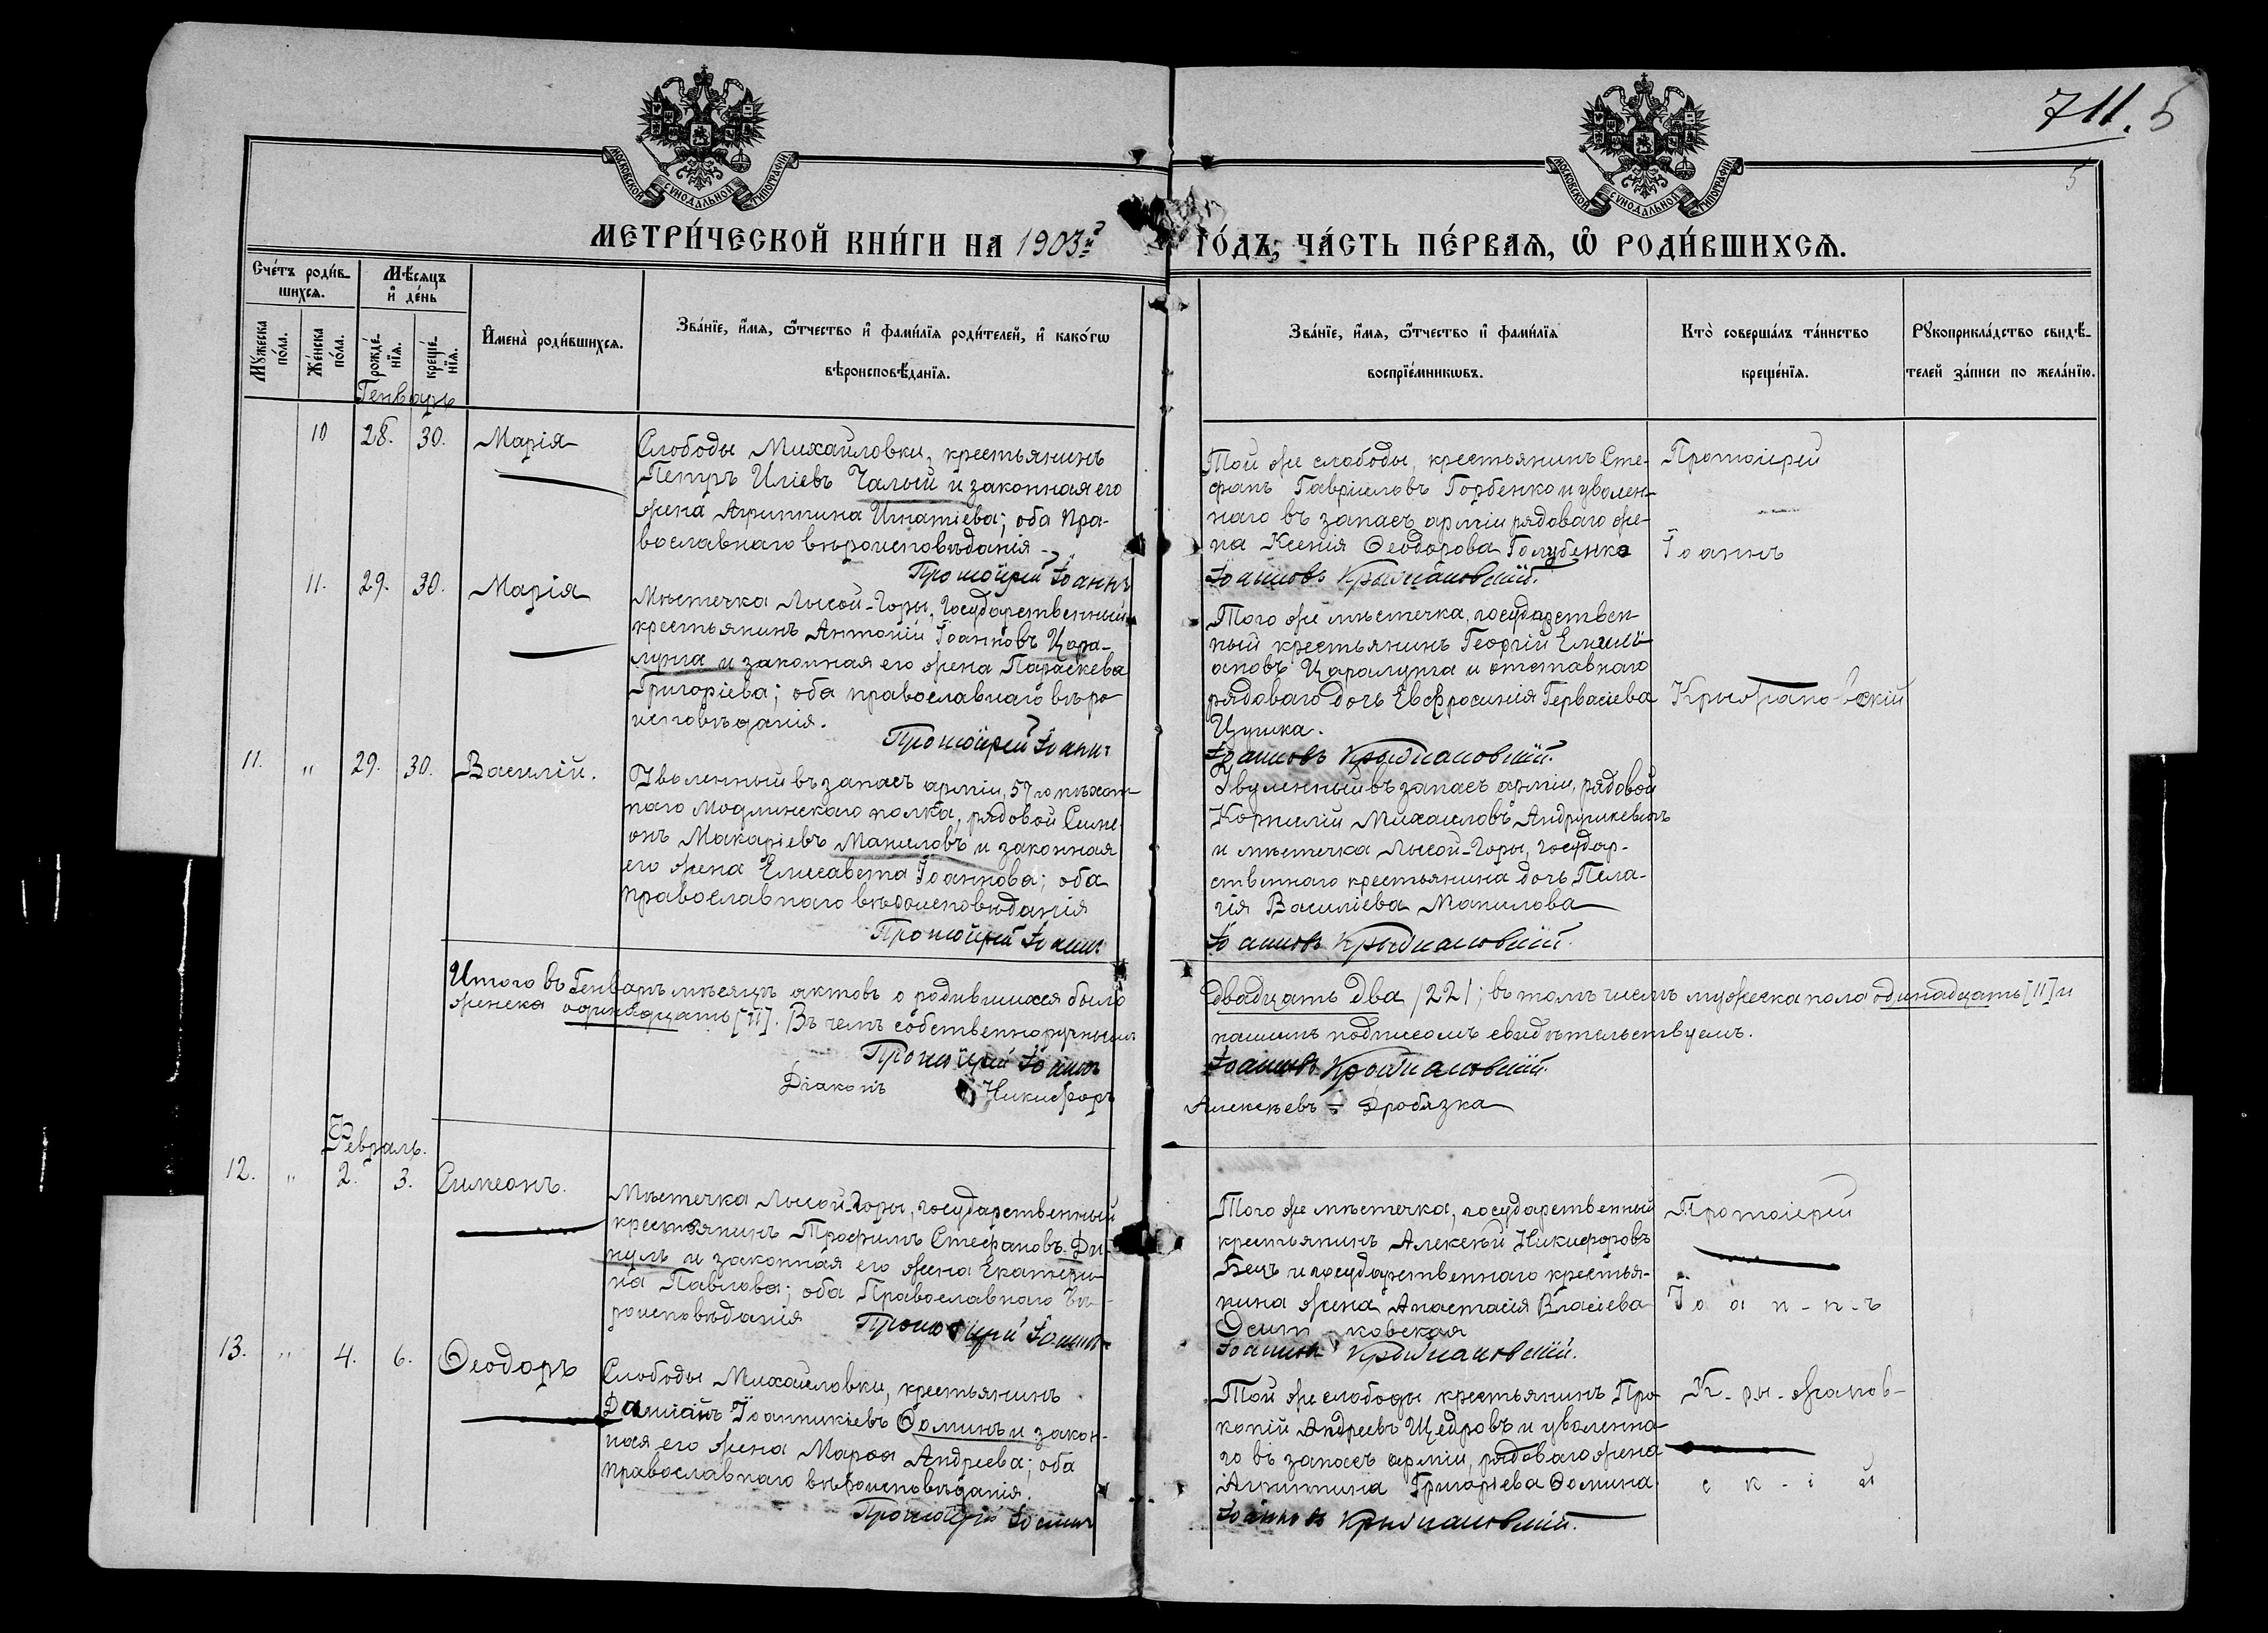 711. 5
5
МОСКОВСКОЙ СУНОДАЛЬНОЙ ТИПОГРАФІИ.
МОСКОВСКОЙ СУНОДАЛЬНОЙ ТИПОГРАФІИ.
МЕТРИ́ЧЕСКОЙ КНИ́ГИ НА 1903й
ГО́ДЪ, ЧА́СТЬ ПЕ́РВАЯ, Ѿ РОДИ́ВШИХСѦ.
Сче́тъ роди́в-
шихсѧ.
Мѣ́сѧцъ
и҆ де́нь
Мꙋ́жеска
по́ла.
Же́нска
по́ла.
рожде́-
нїѧ.
креще́-
нїѧ.
И҆мена̀ роди́вшихсѧ.
Зва́нїе, и҆́мѧ, ѻ҆́тчество и҆ фами́лїѧ роди́телей, и҆ како́гѡ
вѣроисповѣ́данїѧ.
Зва́нїе, и҆́мѧ, ѻ҆́тчество и҆ фами́лїѧ
воспрїе́мникѡвъ.
Кто̀ соверша́лъ та́инство
креще́нїѧ.
Рꙋкоприкла́дство свидѣ́-
телей за́писи по жела́нїю.
Генварь
10 28. 30. Марія
Слободы Михайловки, крестьянинъ
Петръ Иліевъ Чалый и законная его
жена Агриппина Игнатіева; оба пра-
вославнаго вѣроисповѣданія.
Протоіерей Іоаннъ
Той же слободы, крестьянинъ Сте-
фанъ Гавріиловъ Горбенко и уволен-
наго въ запасъ арміи рядоваго же-
на Ксенія Ѳеодорова Голубенко
Іоанновъ Крыжановскій.
Протоіерей
Іоаннъ
11. 29. 30. Марія
Мѣстечка Лысой-Горы, государственный
крестьянинъ Антоній Іоанновъ Цара-
лунга и законная его жена Параскева
Григоріева; оба православнаго вѣро
исповѣданія.
Протоіерей Іоаннъ
Того же мѣстечка, государствен
ный крестьянинъ Георгій Емилі-
ановъ Царалунга и отставнаго
рядоваго дочь Евфросинія Гервасіева
Цушка.
Іоанновъ Крыжановскій.
Крыжановскій
11. " 29. 30. Василій.
Уволенный въ запасъ арміи, 57го пѣхот
наго Модлинскаго полка, рядовой Симе
онъ Макаріевъ Маниловъ и законная
его жена Елисавета Іоаннова; оба
православнаго вѣроисповѣданія
Протоіерей Іоаннъ
Уволенный въ запасъ арміи, рядовой
Корнилій Михаиловъ Андрушкевичъ
и мѣстечка Лысой-Горы, государ-
ственнаго крестьянина дочь Пела-
гія Василіева Манилова
Іоанновъ Крыжановскій.
Итого въ Генварѣ мѣсяцѣ актовъ о родившихся было
двадцать два /22/; въ томъ числѣ мужеска пола одинадцать [11] и
женска одинадцать [11]. Въ чемъ собственноручнымъ
нашимъ подписомъ свидѣтельствуемъ.
Протоіерей Іоаннъ
Іоанновъ Крыжановскій.
Діаконъ Никифоръ
Алексѣевъ Дробязка
Февраль.
12. " 2. 3. Симеонъ.
Мѣстечка Лысой-Горы, государственный
крестьянинъ Трофимъ Стефановъ Ди-
нулъ и законная его жена Екатери-
на Павлова; оба Православнаго вѣ-
роисповѣданія
Протоіерей Іоаннъ
Того же мѣстечка, государственный
крестьянинъ Алексѣй Никифоровъ
Бецъ и государственнаго крестья-
нина жена Анастасія Власіева
Осит-ковская
Іоанновъ Крыжановскій.
Протоіерей
Іоан-н-ъ
13. " 4. 6. Ѳеодоръ
Слободы Михайловки, крестьянинъ
Даміанъ Іоанникіевъ Ѳоминъ и закон-
ная его жена Марѳа Андреева; оба
православнаго вѣроисповѣданія.
Протоіерей Іоаннъ
Той же слободы крестьянинъ Про-
копій Андреевъ Щедровъ и уволенна-
го въ запасъ арміи, рядоваго жена
Агриппина Григоріева Ѳомина.
Іоанновъ Крыжановскій.
К-ры-жанов-
с к-і й